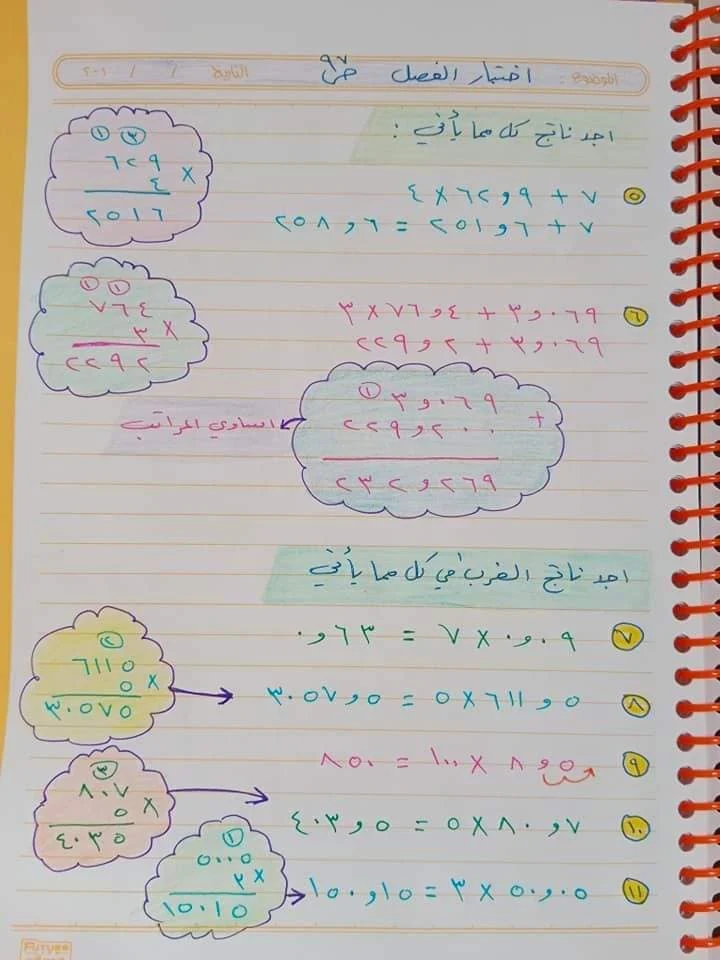 الموضوع : اختبار الفصل ص ٩٧ التاريخ / / ٢٠١
اجد ناتج كل مما يأتي :
٥ ٧ + ٩و٦٢ × ٤
٧ + ٦و٢٥١ = ٦و٢٥٨
١ ٣
٦٢٩
× ٤
٢٥١٦
٦ ٠٦٩و٣ + ٤و٧٦ × ٣
٠٦٩و٣ + ٢و٢٢٩
١ ١
٧٦٤
× ٣
٢٢٩٢
١
٠٦٩و٣
+
٢٠٠و٢٢٩
٢٦٩و٢٣٢
اساوي المراتب
اجد ناتج الضرب في كل مما يأتي
٧ ٠٩و٠ × ٧ = ٦٣و٠
٨ ٥و٦١١ × ٥ = ٥و٣٠٥٧
٢
٦١١٥
× ٥
٣٠٥٧٥
٩ ٥و٨ × ١٠٠ = ٨٥٠
١٠ ٧و٨٠ × ٥ = ٥و٤٠٣
٣
٨٠٧
× ٥
٤٠٣٥
١١ ٠٥و٥٠ × ٣ = ١٥و١٥٠
١
٥٠٠٥
× ٣
١٥٠١٥
FUTURE